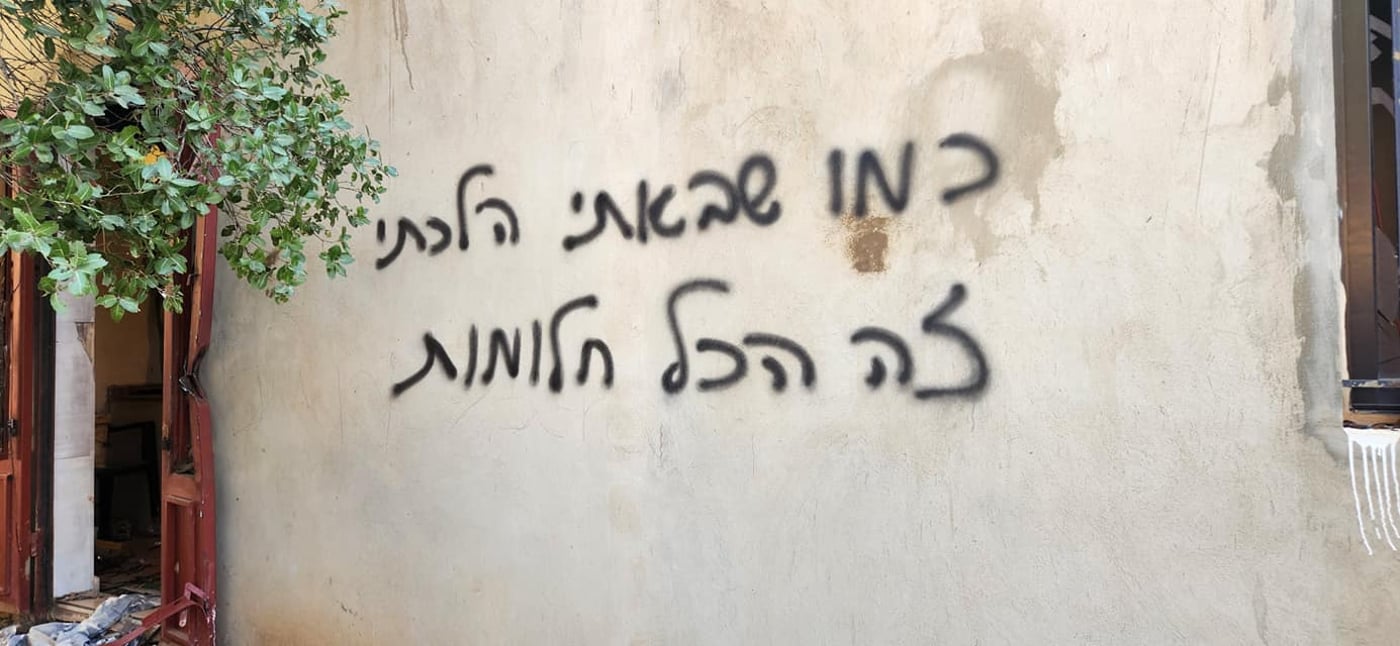 כמו שבאתי הלכתי
זה הכל חלומות